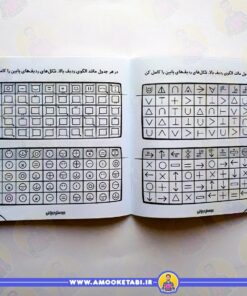 در هر جدول مانند الگوی ردیف بالا، شکل‌های ردیف‌های پایین را کامل کن
در هر جدول مانند الگوی ردیف بالا، شکل‌های ردیف‌های پایین را کامل کن
WWW.AMOOKETABI.IR